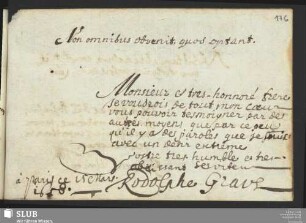 176
Non omnibus obvenit quod optant.
Monsieur et tres-honnoré frere
je voudrois de tout mon Cœur
vous pouvoir tesmoigner par des
autres moyens que par ce peu
qu'il y a des paroles que je suis
avec un desir extréme
Vostre tres humble et tres
obeissant serviteur
à Paris ce
Rodolphe
SLUB
Wir führen Wissen.